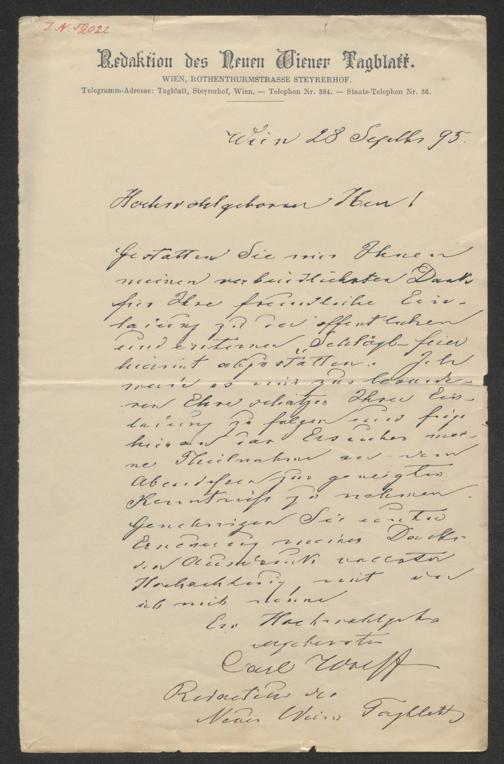 I. N. 52022
Redaktion des Neuen Wiener Tagblatt.
WIEN, ROTHENTHURMSTRASSE STEYRERHOF.
Telegramm-Adresse: Tagblatt, Steyrerhof, Wien. — Telephon Nr. 384. — Staats-Telephon Nr. 36.
Wien 28 Septbr 95.
Hochwohlgeborner Herr!
Gestatten Sie mir Ihnen
meinen verbindlichsten Dank
für Ihre freundliche Ein-
ladung zu der öffentlichen
und internen "Schlögl-feier
hiermit abzustatten. Ich
werde es mir zur besonde-
ren Ehre schätzen Ihrer Ein-
ladung zu folgen und füge
hieran das Ersuchen mei-
ne Theilnahme an dem
Abendessen zur geneigten
Kenntniß zu nehmen.
Genehmigen Sie unter
Erneuerung meines Danks
den Ausdruck vollster
Hochachtung, mit der
ich mich nenne
Ew Hochwohlgeb
ergebenster
Carl Wolff
Redacteur des
Neuen Wiener Tagblatt